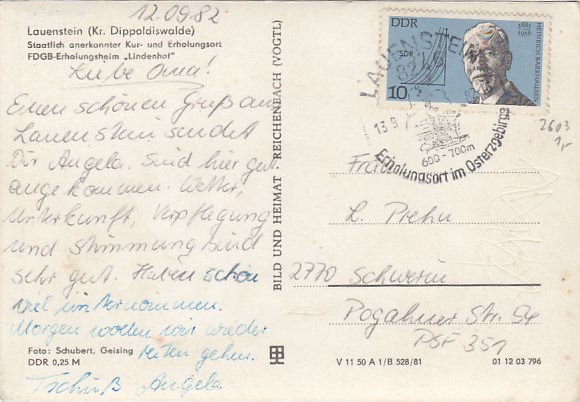 12.09.82
Lauenstein (Kr. Dippoldiswalde)
Staatlich anerkannter Kur- und Erholungsort
FDGB-Erholungsheim „Lindenhof"
Liebe Oma!
Einen schönen Gruß aus
Lauenstein sendet
Dir Angela. Sind hier gut
angekommen. Wetter,
Unterkunft, Verpflegung
und Stimmung sind
sehr gut. Haben schon
viel unternommen.
Morgen wollen wir wieder
reiten gehen.
Tschüß Angela
Foto: Schubert, Geising
DDR 0,25 M
BILD UND HEIMAT · REICHENBACH (VOGTL)
DDR
1881
1956
HEINRICH BARKHAUSEN
SDR
10
LAUENSTEIN
13.9
600-700m
Erholungsort im Osterzgebirge
2603
1,-
Frau
L. Prehn
2770 Schwerin
Pogalner Str. 54
PSF 351
V 11 50 A 1/B 528/81
01 12 03 796